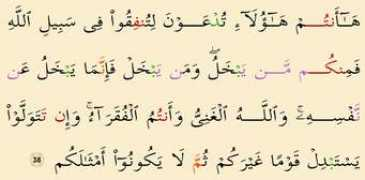 هَـٰٓأَنتُمْ هَـٰٓؤُلَآءِ تُدْعَوْنَ لِتُنفِقُوا۟ فِى سَبِيلِ ٱللَّهِ
فَمِنكُم مَّن يَبْخَلُ ۖ وَمَن يَبْخَلْ فَإِنَّمَا يَبْخَلُ عَن
نَّفْسِهِۦ ۚ وَٱللَّهُ ٱلْغَنِىُّ وَأَنتُمُ ٱلْفُقَرَآءُ ۚ وَإِن تَتَوَلَّوْا۟
يَسْتَبْدِلْ قَوْمًا غَيْرَكُمْ ثُمَّ لَا يَكُونُوٓا۟ أَمْثَـٰلَكُم 38